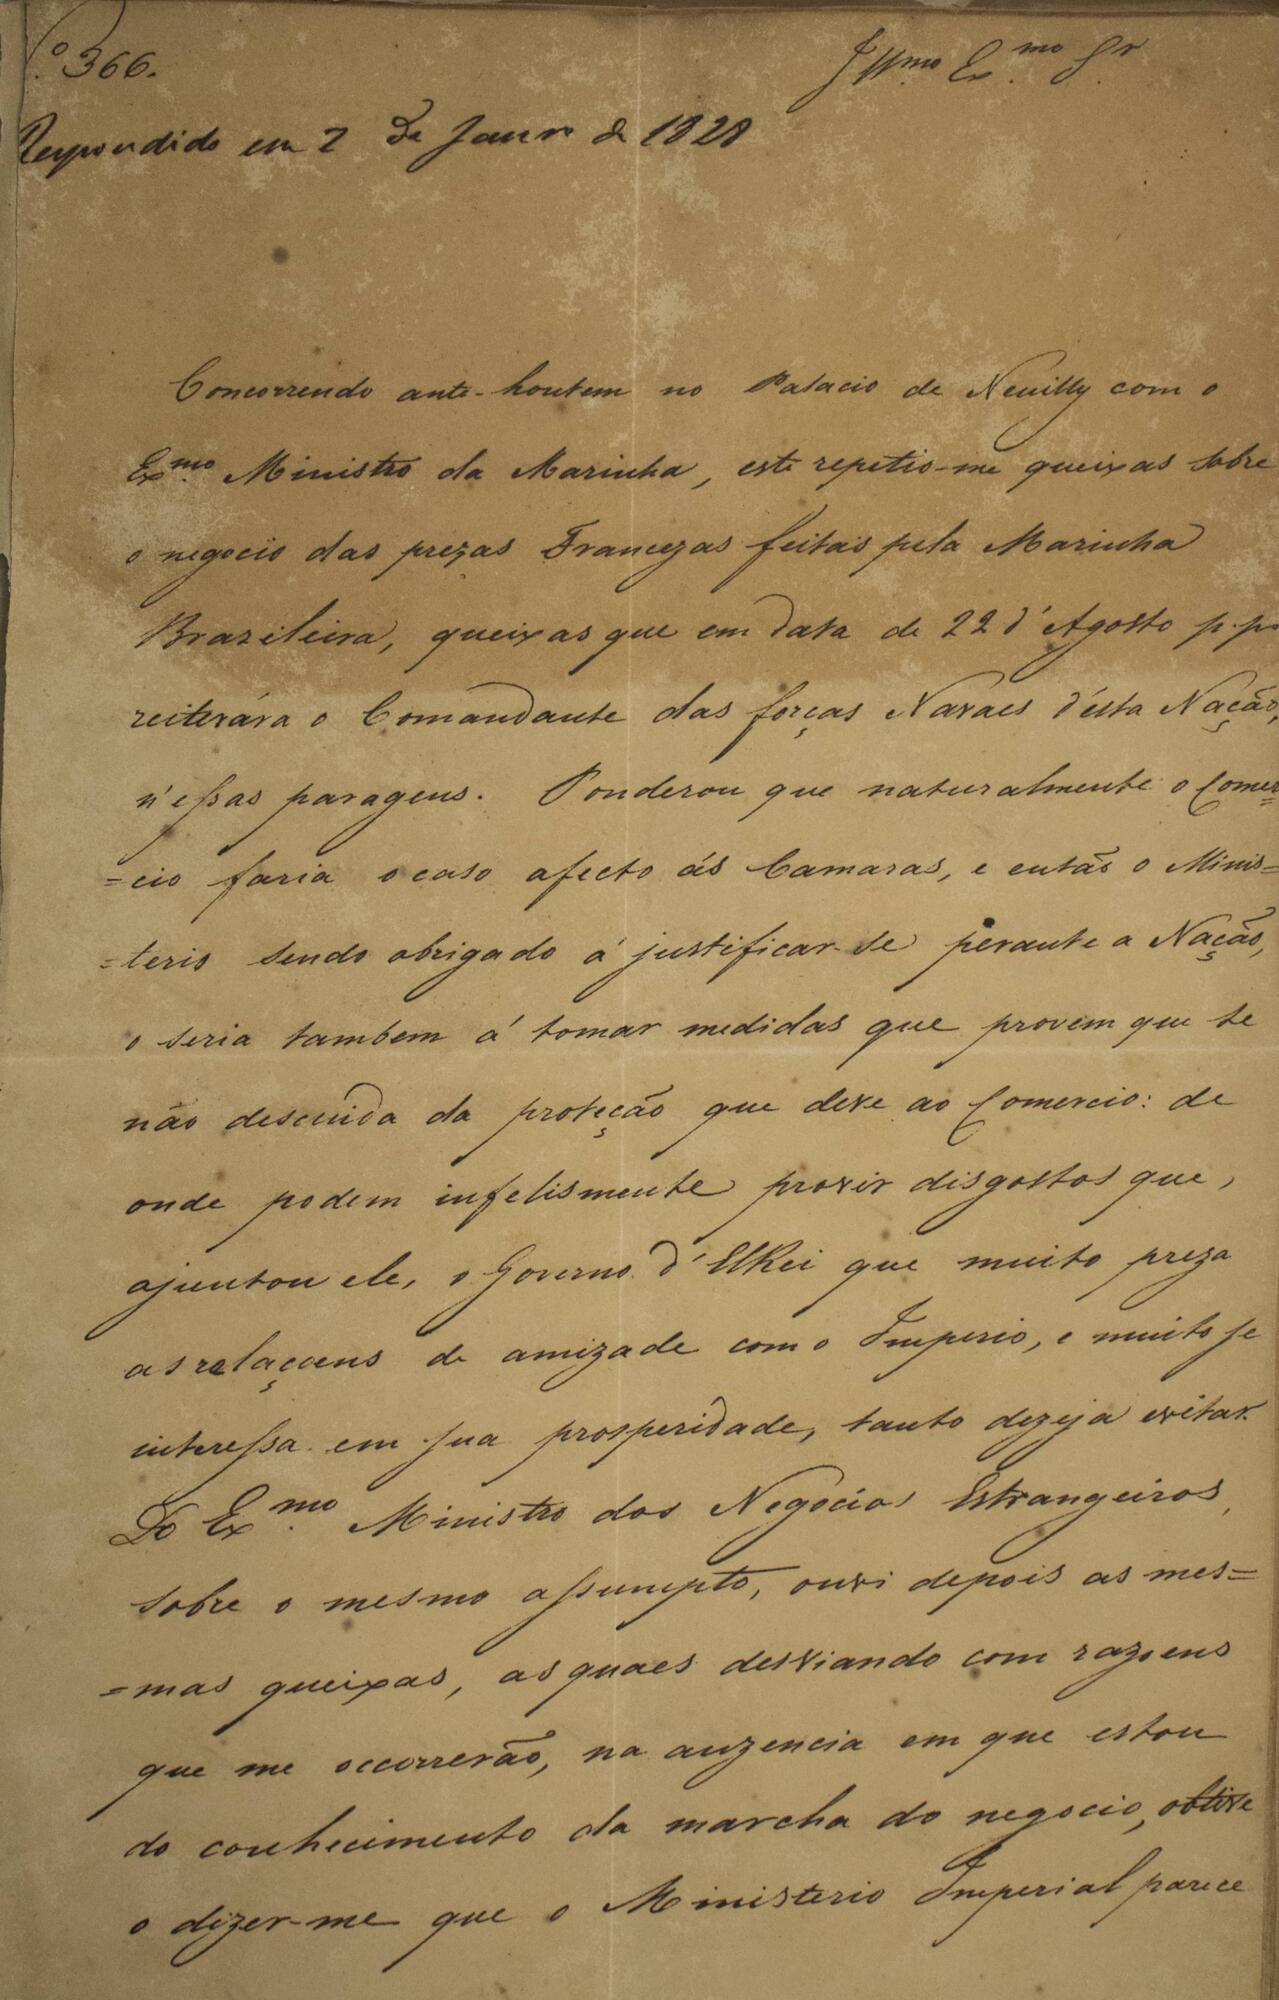 N.o 366.
Illmo Exmo Sr
Respondido em 2 de Janro de 1828
Concorrendo ante-hontem no Palacio de Neuilly com o
Exmo Ministro da Marinha, este repetio-me queixas sobre
o negocio das prezas Francezas feitas pela Marinha
Brazileira, queixas que em data de 22 d'Agosto p.p.
reiterára o Comandante das forças Navaes d'esta Nação,
n'essas paragens. Ponderou que naturalmente o Comer=
=cio faria o caso afecto ás Camaras, e então o Minis=
=terio sendo obrigado á justificar-se perante a Nação,
o seria tambem á tomar medidas que provem que se
não descuida da proteção que deve ao Comercio: de
onde podem infelismente provir disgostos que,
ajuntou ele, o Governo d'ElRei que muito preza
as relaçoens de amizade com o Imperio, e muito se
interessa em sua prosperidade, tanto dezeja evitar.
Do Exmo Ministro dos Negocios Estrangeiros,
sobre o mesmo assumpto, ouvi depois as mes=
=mas queixas, as quaes desviando com razoens
que me occorrerão, na auzencia em que estou
do conhecimento da marcha do negocio, obtive
o dizer-me que o Ministerio Imperial parece